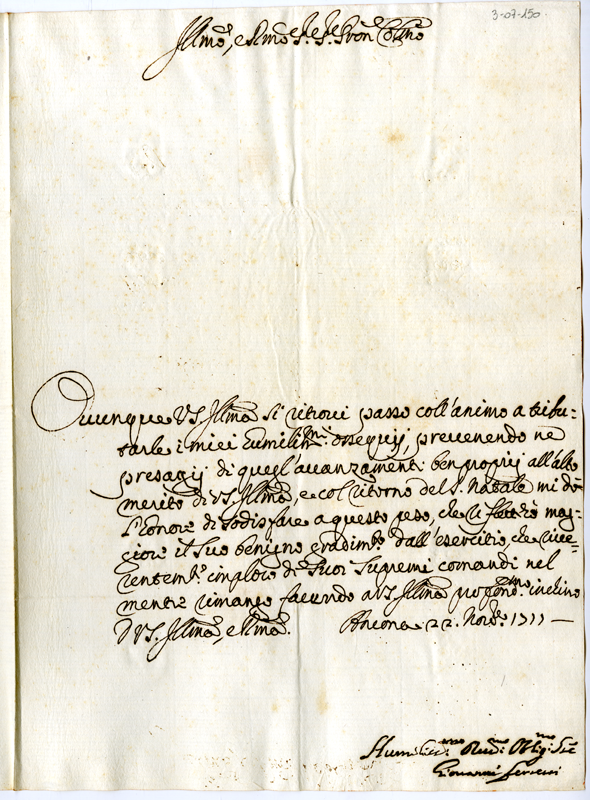 3-07-150.
Illmo, e Rmo Sr. Sr. Pron Colmo
Ovunque VS Illma si ritrovi passo coll'animo a tribu-
tarle i miei humilissmi ossequij, prevenendo ne
presagij di quegl'avanzamenti ben proprij all'alto
merito di VS. Illma, e col ritorno del S. Natale mi dò
l'honore di sodisfare a questo peso, che
il suo benigno gradimto dall'esercitio, che rive-
rentemte imploro di suoi supremi comandi nel
mentre rimango facendo a VS Illma profondmo inchino
D VS. Illma, e Rma. Ancona 22. Novre. 1711 —
Humilissmo Devmo Obligmo Sre
Giovanni